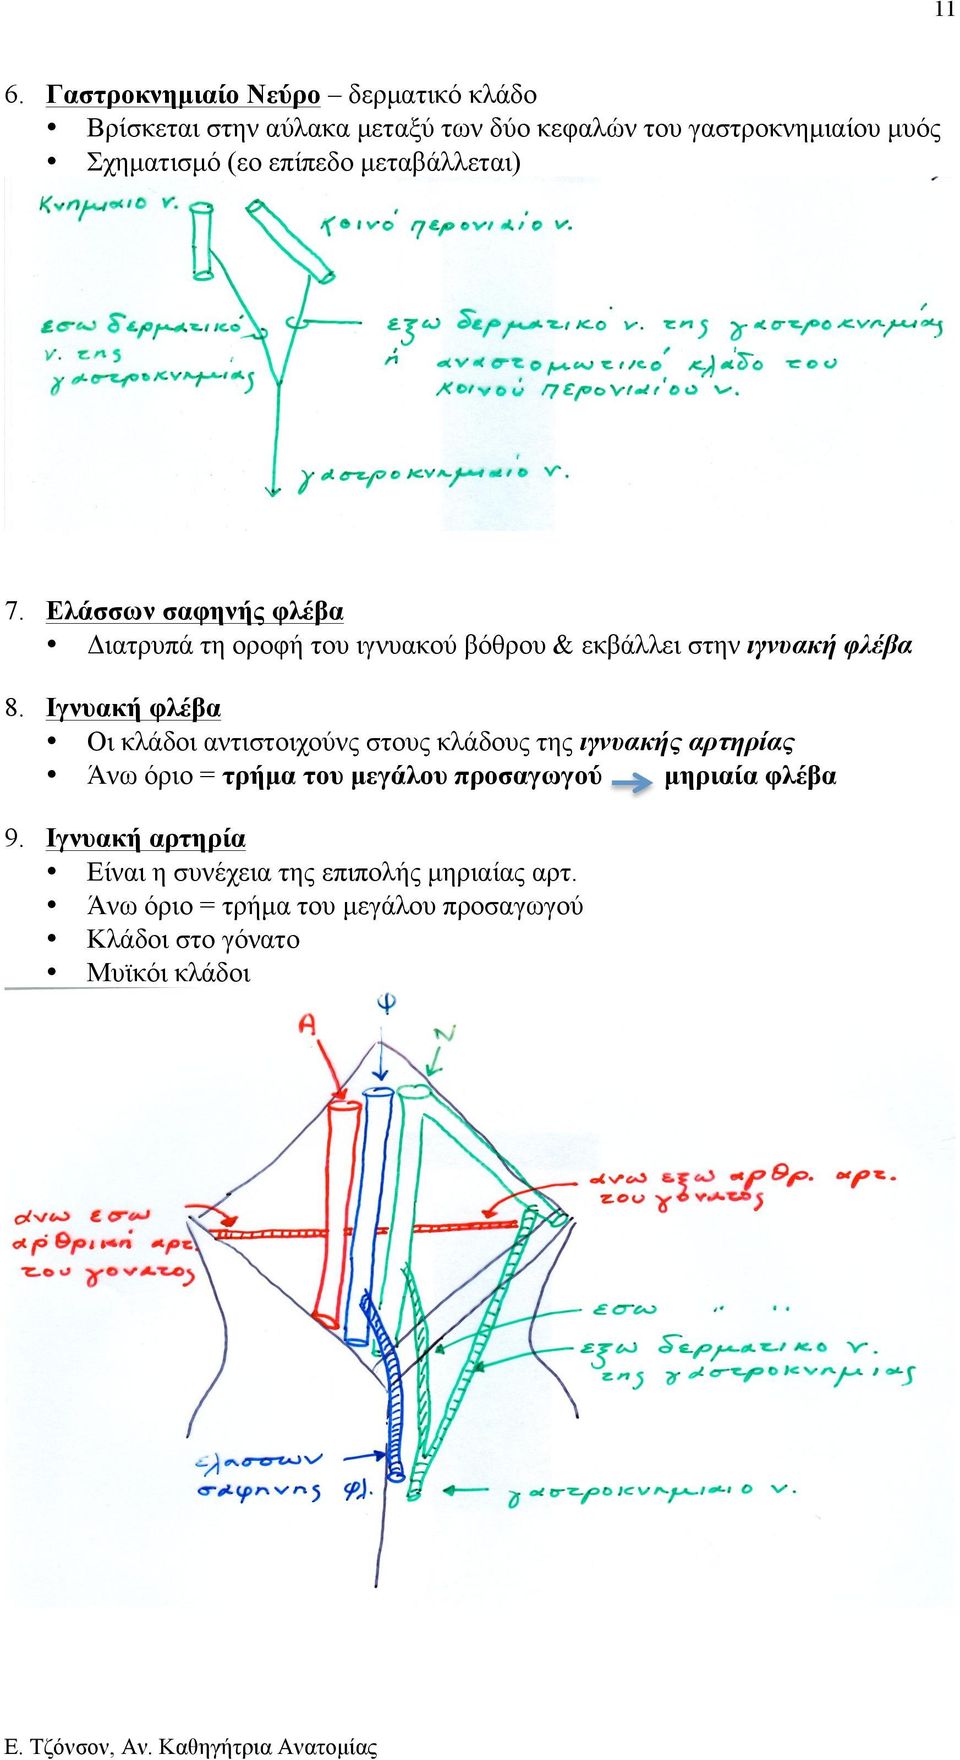 11
6. Γαστροκνημιαίο Νεύρο – δερματικό κλάδο
• Βρίσκεται στην αύλακα μεταξύ των δύο κεφαλών του γαστροκνημιαίου μυός
• Σχηματισμό (εο επίπεδο μεταβάλλεται)
Κνημιαιο ν.
Κοινό περονιαίο ν.
εσω δερματικό
ν. της
γαστροκνημιάς
εξω δερματικό ν. της γαστροκνημίας
ή αναστομωτικό κλάδο του
Κοινού περονιαίου ν.
γαστροκνημιαίο ν.
7. Ελάσσων σαφηνής φλέβα
• Διατρυπά τη οροφή του ιγνυακού βόθρου & εκβάλλει στην ιγνυακή φλέβα
8. Ιγνυακή φλέβα
• Οι κλάδοι αντιστοιχούνς στους κλάδους της ιγνυακής αρτηρίας
• Άνω όριο = τρήμα του μεγάλου προσαγωγού μηριαία φλέβα
9. Ιγνυακή αρτηρία
• Είναι η συνέχεια της επιπολής μηριαίας αρτ.
• Άνω όριο = τρήμα του μεγάλου προσαγωγού
• Κλάδοι στο γόνατο
• Μυϊκόι κλάδοι
Α
Φ
Ν
άνω εξω αρθρ. αρτ.
του γόνατος
άνω εσω
αρθρική αρτ.
του γονατος
εσω " "
εξω δερματικο ν.
της γαστροκνημιας
ελασσων
σαφηνης φλ.
γαστροκνημιαιο ν.
Ε. Τζόνσον, Αν. Καθηγήτρια Ανατομίας